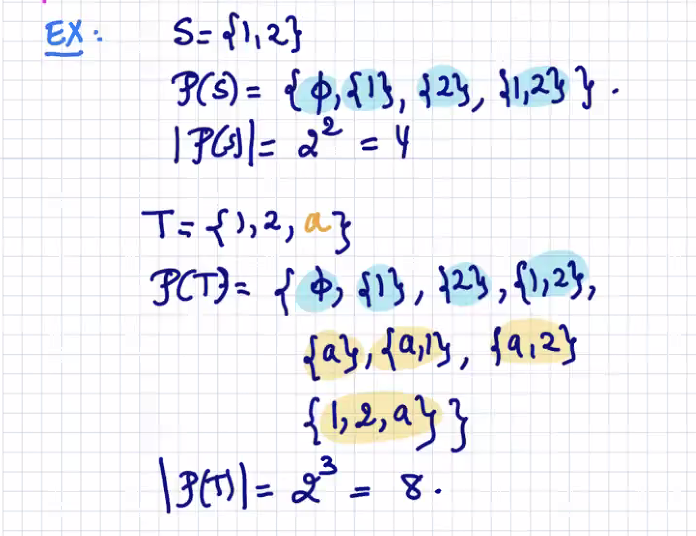 EX: S={1,2}
P(S)= {ϕ,{1}, {2}, {1,2} }.
|P(S)|= 2² = 4
T= {1,2, a}
P(T)= { ϕ, {1}, {2}, {1,2},
{a}, {a,1}, {a,2}
{1,2,a} }
|P(T)|= 2³ = 8.